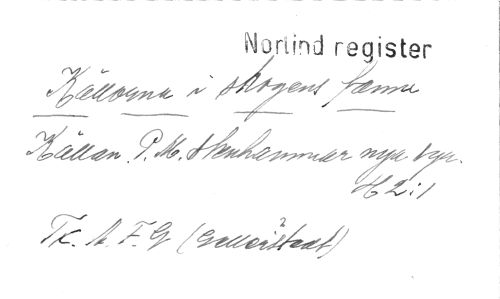 Norlind register
Källorna i skogens famn
Källan. P. M. Stenhammar nya tyx.
H 2:1
Tk. A. F. G